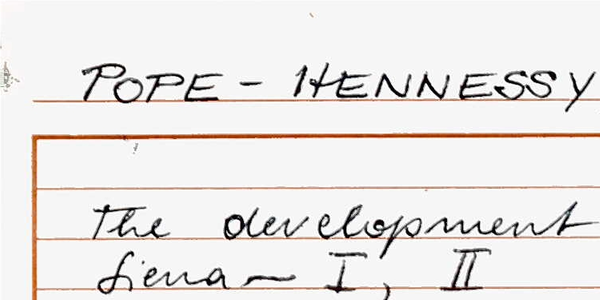 POPE - HENNESSY
The development
Siena - I, II